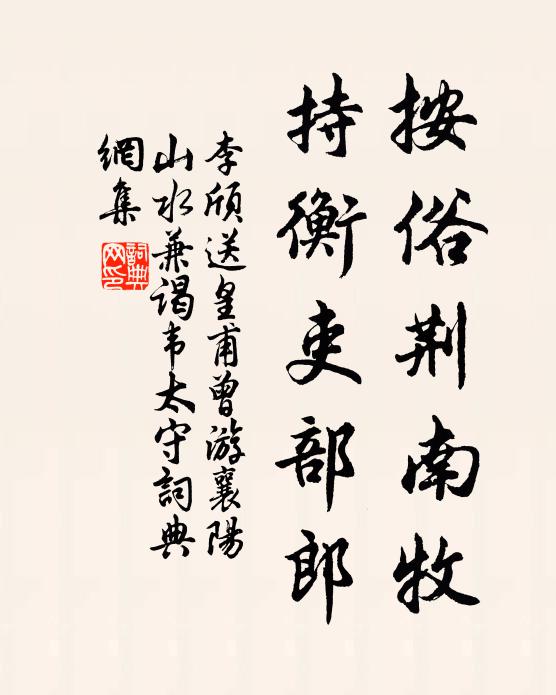 按俗荆南牧
持衡吏部郎
李颀送皇甫曾游襄陽
山水兼谒韦太守詞典
網集
詞典網印